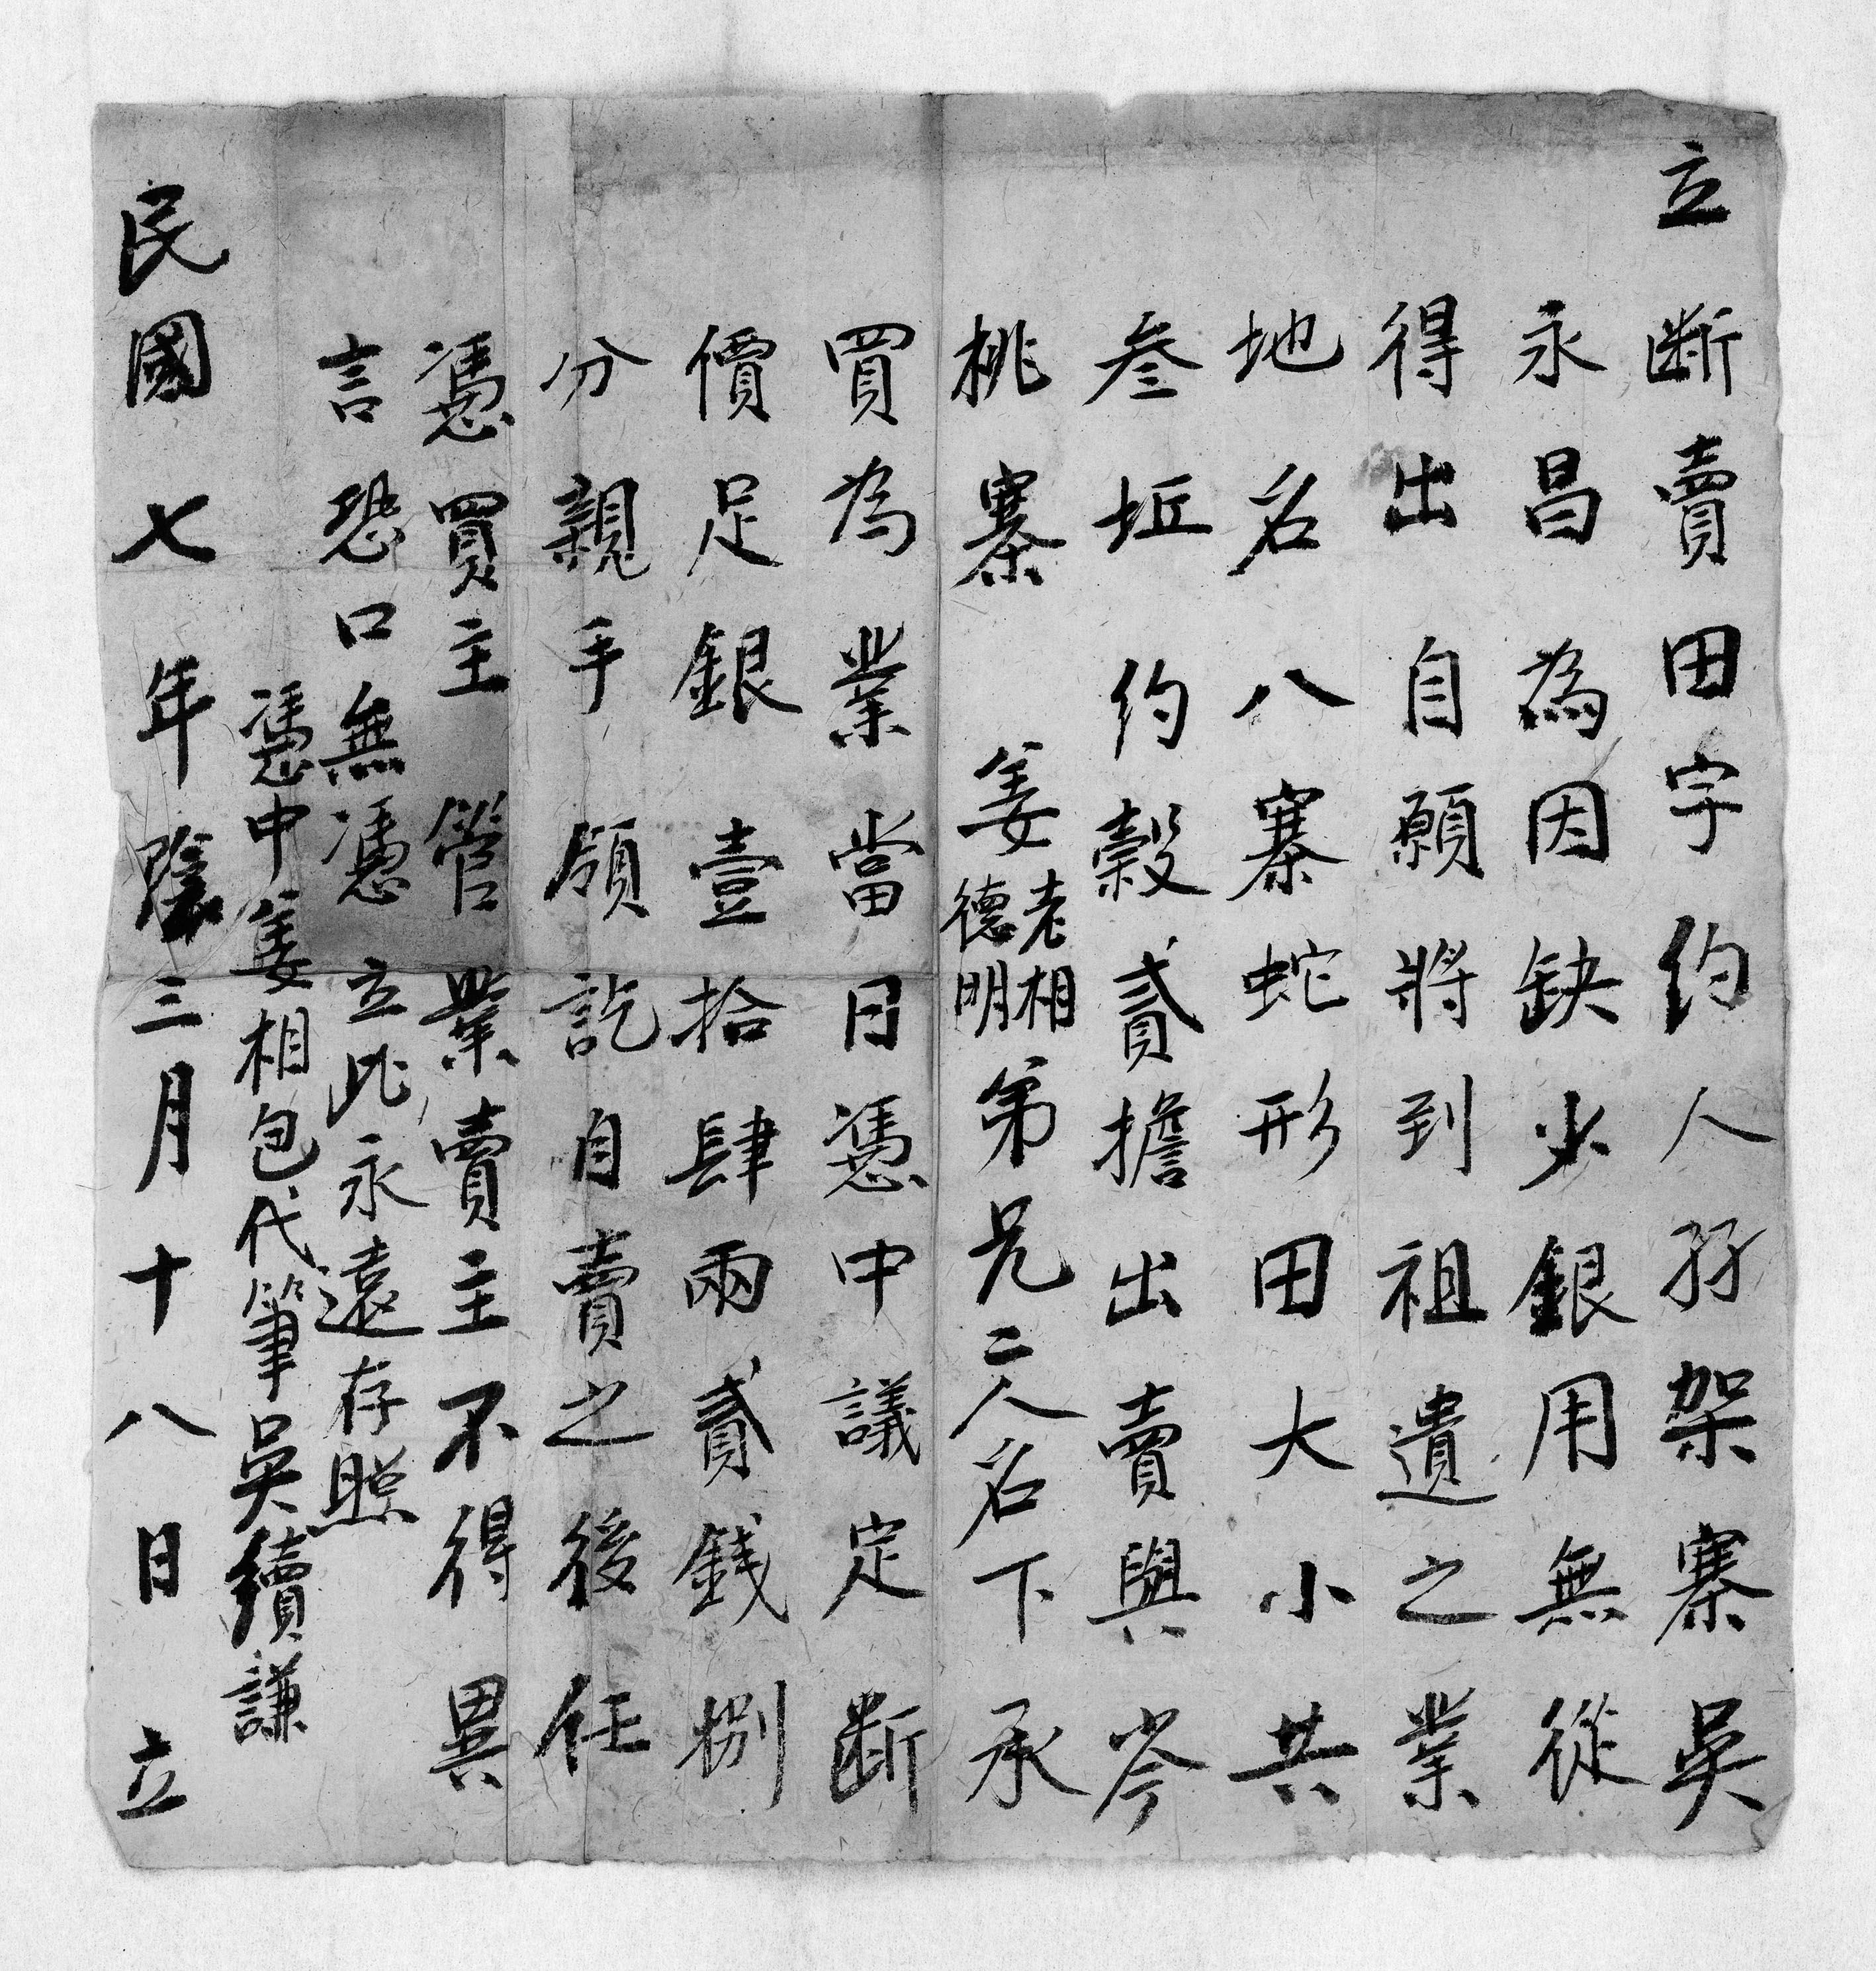 立断賣田字約人孖架寨吳
永昌為因缺少銀用無從
得出自願將到祖遺之業
地名八寨蛇形田大小共
叁坵約穀貳擔出賣與岑
桃寨姜老相德明弟兄二人名下承
買為業當日憑中議定断
價足銀壹拾肆兩貳錢捌
分親手領訖自賣之後任
憑買主管業賣主不得異
言恐口無憑立此永遠存照
憑中姜相包代筆吳續謙
民國七年陰三月十八日立